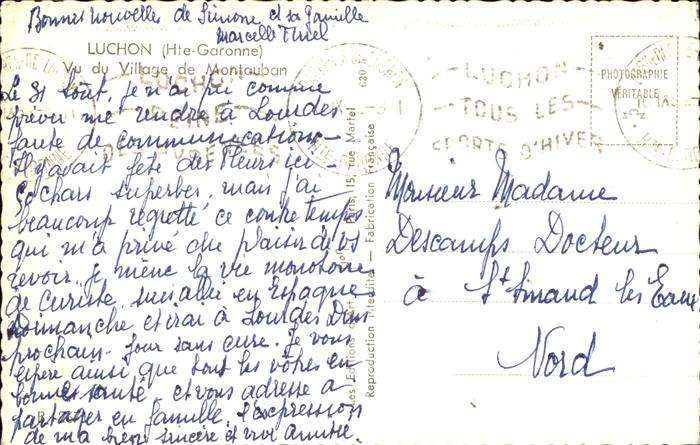 Bonnes nouvelles de Simone et sa famille
Marcelle
LUCHON (Hte-Garonne)
Vu du Village de Montauban
Le 31 Août, je n'ai pu comme
prévu me rendre à Lourdes
faute de communications -
Il y avait fête des Fleurs ici -
chars superbes, mais j'ai
beaucoup regretté ce contretemps
qui m'a privé du plaisir de vs
revoir. je mène la vie monotone
de curiste, suis allée en Espagne
Dimanche et irai à Lourdes Dim
prochain. Jour sans cure. Je vous
espère ainsi que tous les vôtres en
bonne santé. et vous adresse à
partager en famille, l'expression
de ma bien sincère et vive amitié.
Paris, 115, rue Martel
Les Editions d'Art
Reproduction Interdite — Fabrication Française
LUCHON
TOUS LES
SPORTS D'HIVER
PHOTOGRAPHIE
VÉRITABLE
Monsieur Madame
Descamps Docteur
à St Amand les Eaux
Nord